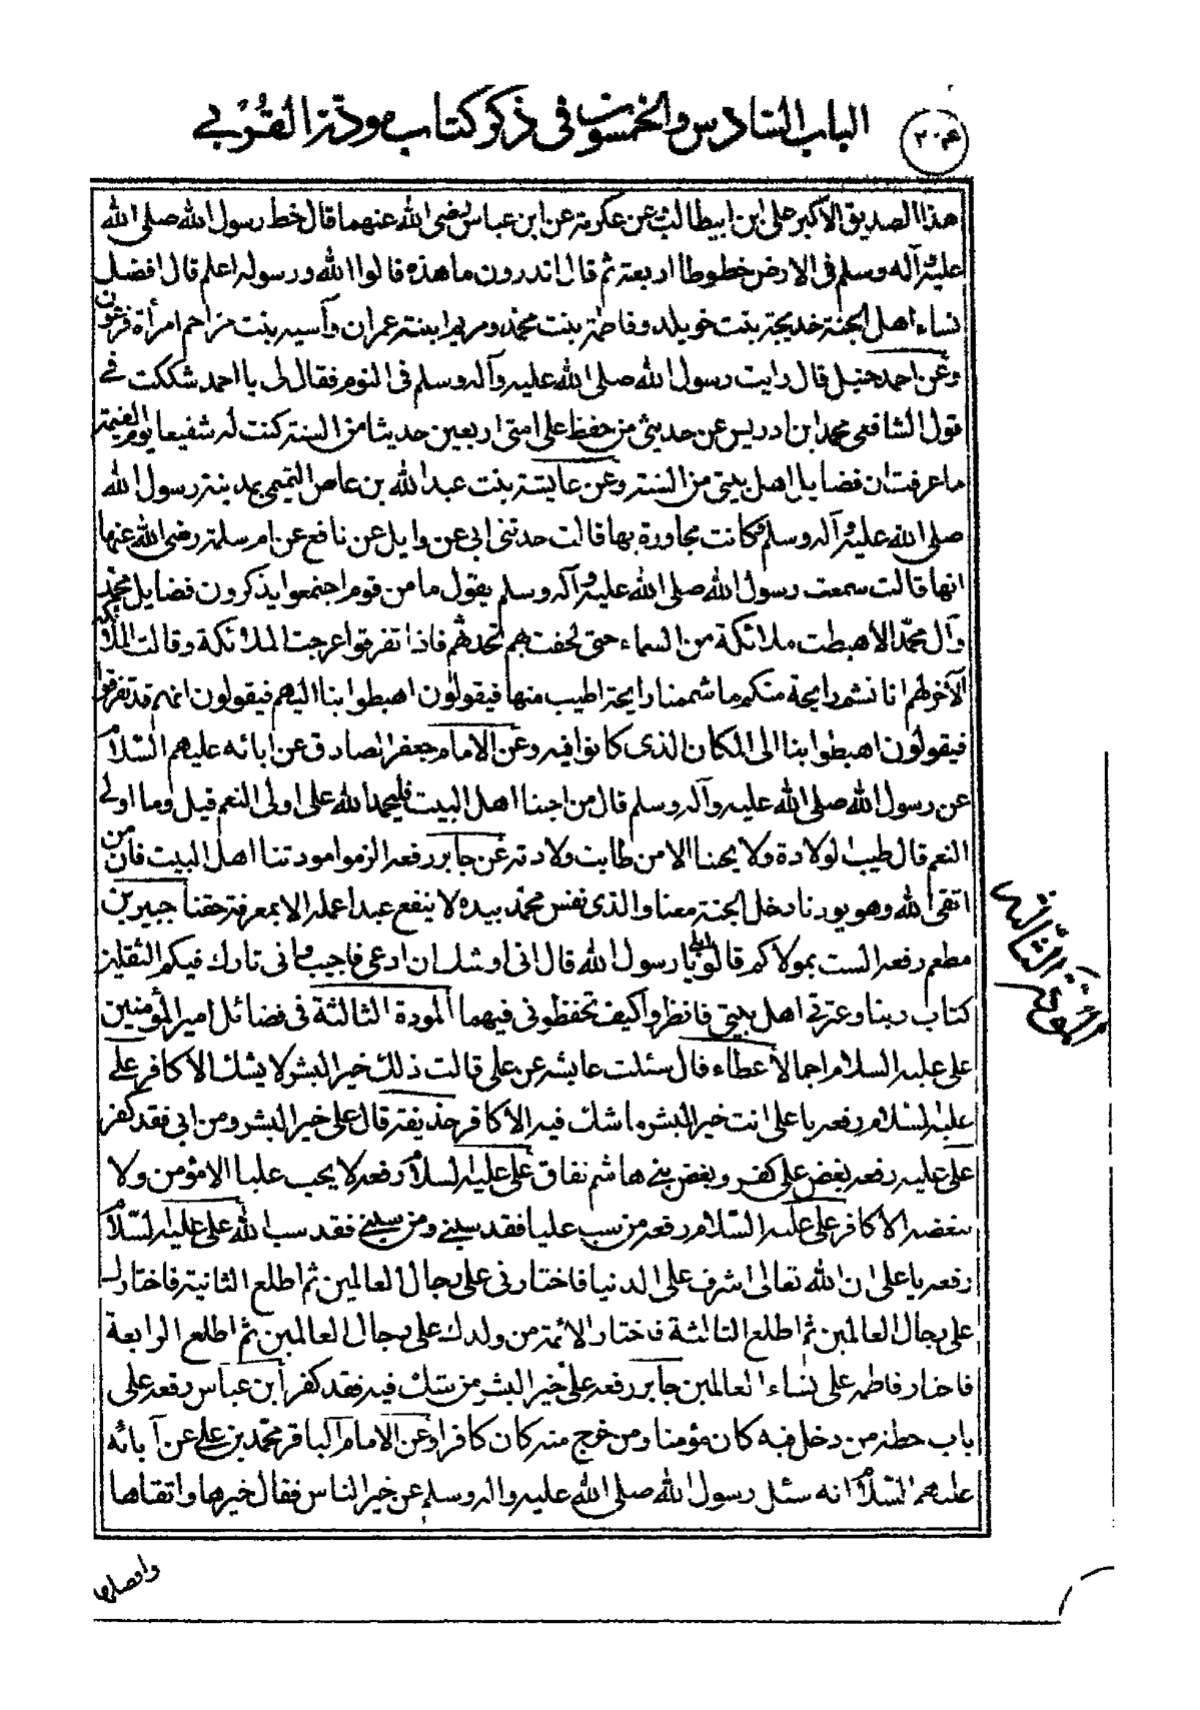 الباب السادس والخمسون في ذكر كتاب مودة القربى
٢٠٤
هذا الصديق الاكبر علي ابن ابيطالب عن عكرمة عن ابن عباس رضي الله عنهما قال خط رسول الله صلى الله
عليه وآله وسلم في الارض خطوطا اربعة ثم قال اتدرون ما هذه قالوا الله ورسوله اعلم قال افضل
نساء اهل الجنة خديجة بنت خويلد وفاطمة بنت محمد ومريم ابنة عمران وآسيه بنت مزاحم امرأة فرعون
وعن احمد حنبل قال رايت رسول الله صلى الله عليه وآله وسلم في النوم فقال لي يا احمد شككت في
قول الشافعي محمد ابن ادريس عن حديثي من حفظ على امتي اربعين حديثا من السنة كنت له شفيعا يوم القيمة
ما عرفت ان فضايل اهل بيتي من السنة وعن عايشة بنت عبد الله بن عاص التميمي بمدينة رسول الله
صلى الله عليه وآله وسلم فكانت مجاورة بها قالت حدثني ابي عن وايل عن نافع عن ام سلمة رضي الله عنها
انها قالت سمعت رسول الله صلى الله عليه وآله وسلم يقول ما من قوم اجتمعوا يذكرون فضايل محمد
وآل محمد الا هبطت ملائكة من السماء حتى لحقت بهم تحدثهم فاذا تفرقوا عرجت الملائكة وقالت الملائكة
الآخر لهم انا نشم رايحة منكم ما شممنا رايحة اطيب منها فيقولون اهبطوا بنا اليهم فيقولون انهم قد تفرقوا
فيقولون اهبطوا بنا الى المكان الذى كانوا فيه وعن الامام جعفر الصادق عن ابائه عليهم السلام
عن رسول الله صلى الله عليه وآله وسلم قال من احبنا اهل البيت فليحمد الله على اولى النعم قيل وما اولى
النعم قال طيب الولادة ولا يحبنا الا من طابت ولادته عن جابر رفعه الزموا مودتنا اهل البيت فان من
اتقى الله وهو يودنا دخل الجنة معنا والذى نفس محمد بيده لا ينفع عبدا عمله الا بمعرفة حقنا جبير بن
مطعم رفعه الست بمولاكم قالوا بلى يا رسول الله قال انى اوشك ان ادعى فاجيب وانى تارك فيكم الثقلين
كتاب ربنا وعترتي اهل بيتي فانظروا كيف تحفظوني فيهما المودة الثالثة في فضائل امير المؤمنين
علي عليه السلام اجمالا عطاء قال سئلت عايشه عن علي قالت ذلك خير البشر لا يشك الا كافر علي
عليه السلام رفعه يا علي انت خير البشر ما شك فيه الا كافر حذيفة قال علي خير البشر ومن ابى فقد كفر
علي عليه رفعه بغض علي كفر وبغض بني هاشم نفاق علي عليه السلام رفعه لا يحب عليا الا مؤمن ولا
يبغضه الا كافر علي عليه السلام رفعه من سب عليا فقد سبني ومن سبني فقد سب الله علي عليه السلام
رفعه يا علي ان الله تعالى اشرف على الدنيا فاختارنى على رجال العالمين ثم اطلع الثانية فاختارك
على رجال العالمين ثم اطلع الثالثة فاختار الائمة من ولدك على رجال العالمين ثم اطلع الرابعة
فاختار فاطمه على نساء العالمين جابر رفعه علي خير البشر من شك فيه فقد كفر ابن عباس رفعه علي
باب حطة من دخل فيه كان مؤمنا ومن خرج منه كان كافرا وعن الامام الباقر محمد بن علي عن آبائه
عليهم السلام انه سئل رسول الله صلى الله عليه وآله وسلم عن خير الناس فقال خيرها واتقاها
المودة الثالثة
وافضلها